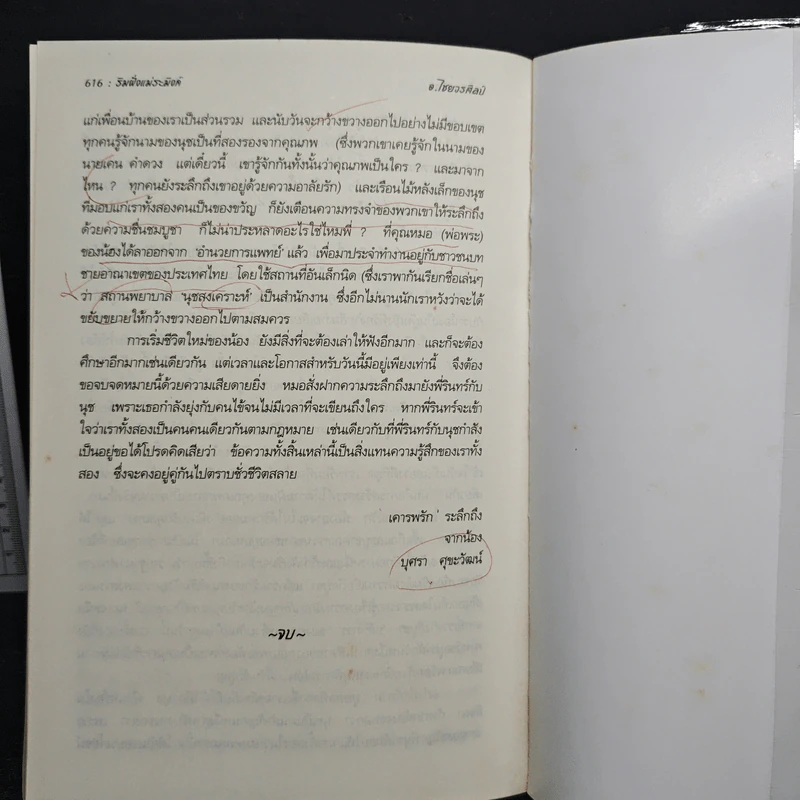 616 : ริมฝั่งแม่ระมิงค์
อ.ไชยวรศิลป์
แก่เพื่อนบ้านของเราเป็นส่วนรวม และนับวันจะกว้างขวางออกไปอย่างไม่มีขอบเขต
ทุกคนรู้จักนามของนุชเป็นที่สองรองจากคุณภพ (ซึ่งพวกเขาเคยรู้จักในนามของ
นายเคน คำดวง แต่เดี๋ยวนี้ เขารู้จักกันทั้งนั้นว่าคุณภพเป็นใคร ? และมาจาก
ไหน ? ทุกคนยังระลึกถึงเขาอยู่ด้วยความอาลัยรัก) และเรือนไม้หลังเล็กของนุช
ที่มอบแก่เราทั้งสองคนเป็นของขวัญ ก็ยังเตือนความทรงจำของพวกเขาให้ระลึกถึง
ด้วยความชื่นชมบูชา ก็ไม่น่าประหลาดอะไรใช่ไหมพี่ ? ที่คุณหมอ (พ่อพระ)
ของน้องได้ลาออกจาก 'อำนวยการแพทย์' แล้ว เพื่อมาประจำทำงานอยู่กับชาวชนบท
ชายอาณาเขตของประเทศไทย โดยใช้สถานที่อันเล็กนิด (ซึ่งเราพากันเรียกชื่อเล่นๆ
ว่า สถานพยาบาล 'นุชสงเคราะห์' เป็นสำนักงาน ซึ่งอีกไม่นานนักเราหวังว่าจะได้
ขยับขยายให้กว้างขวางออกไปตามสมควร
การเริ่มชีวิตใหม่ของน้อง ยังมีสิ่งที่จะต้องเล่าให้ฟังอีกมาก และก็จะต้อง
ศึกษาอีกมากเช่นเดียวกัน แต่เวลาและโอกาสสำหรับวันนี้มีอยู่เพียงเท่านี้ จึงต้อง
ขอจบจดหมายนี้ด้วยความเสียดายยิ่ง หมอสั่งฝากความระลึกถึงมายังพี่รินทร์กับ
นุช เพราะเธอกำลังยุ่งกับคนไข้จนไม่มีเวลาที่จะเขียนถึงใคร หากพี่รินทร์จะเข้า
ใจว่าเราทั้งสองเป็นคนคนเดียวกันตามกฎหมาย เช่นเดียวกับที่พี่รินทร์กับนุชกำลัง
เป็นอยู่ขอได้โปรดคิดเสียว่า ข้อความทั้งสิ้นเหล่านี้เป็นสิ่งแทนความรู้สึกของเราทั้ง
สอง ซึ่งจะคงอยู่คู่กันไปตราบชั่วชีวิตสลาย
'เคารพรัก' ระลึกถึง
จากน้อง
บุศรา ศุขะวัฒน์
~จบ~